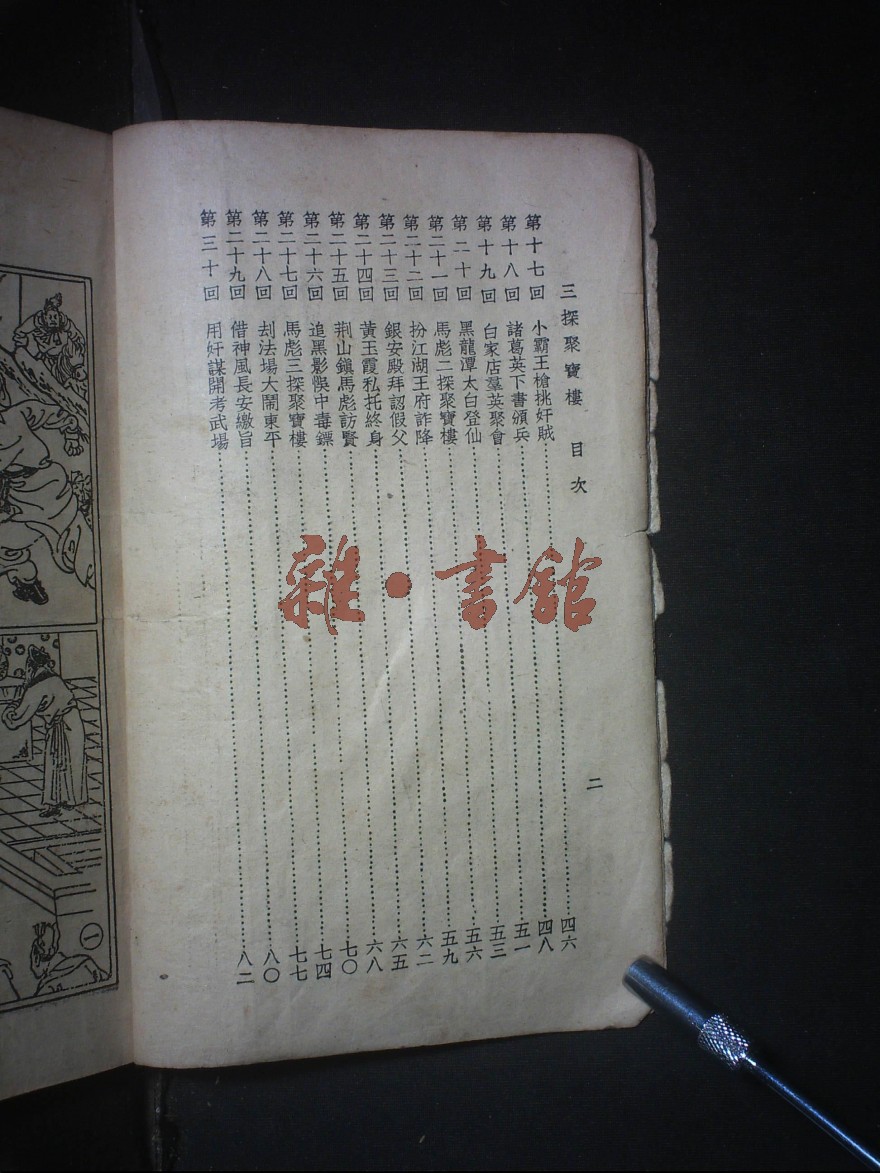 三探聚寶樓 目次 二
第十七回 小霸王槍挑奸賊……四六
第十八回 諸葛英下書頒兵……四八
第十九回 白家店羣英聚會……五一
第二十回 黑龍潭太白登仙……五三
第二十一回 馬彪二探聚寶樓……五六
第二十二回 扮江湖王府詐降……五九
第二十三回 銀安殿拜認假父……六二
第二十四回 黃玉霞私托終身……六五
第二十五回 荆山鎮馬彪訪賢……六八
第二十六回 追黑影悞中毒鏢……七〇
第二十七回 馬彪三探聚寶樓……七四
第二十八回 刦法場大鬧東平……七七
第二十九回 借神風長安繳旨……八〇
第三十回 用奸謀開考武場……八二
雜·書館
一